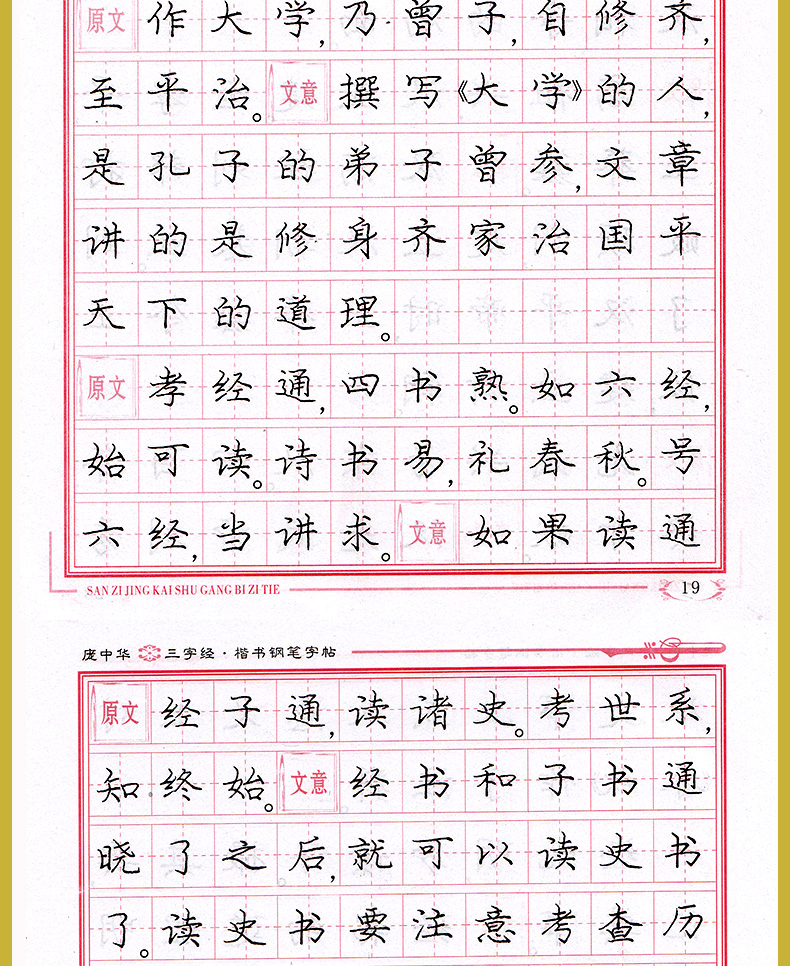 原文 作大学,乃曾子,自修齐,
至平治。文意 撰写《大学》的人,
是孔子的弟子曾参,文章
讲的是修身齐家治国平
天下的道理。
原文 孝经通,四书熟。如六经,
始可读。诗书易,礼春秋。号
六经,当讲求。文意 如果读通
SAN ZI JING KAI SHU GANG BI ZI TIE
19
庞中华 三字经·楷书钢笔字帖
原文 经子通,读诸史。考世系,
知终始。文意 经书和子书通
晓了之后,就可以读史书
了。读史书要注意考查历